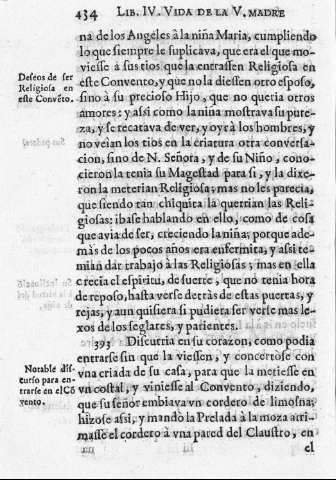 434 LIB. IV. VIDA DE LA V. MADRE
na de los Angeles à la niña Maria, cumpliendo
lo que siempre le suplicava, que era el que mo-
viesse à sus tios que la entrassen Religiosa en
este Convento, y que no la diessen otro esposo,
sino à su precioso Hijo, que no queria otros
amores: y assi como la niña mostrava su pure-
za, y se recatava de ver, y oyrà los hombres, y
no veìan los tios en la criatura otra conversa-
cion, sino de N. Señora, y de su Niño, cono-
cieron la tenia su Magestad para si, y la dixe-
ron la meterian Religiosa; mas no les parecia,
que siendo tan chiquita la querrian las Reli-
giosas: ibase hablando en ello, como de cosa
que avia de ser, creciendo la niña; porque ade-
màs de los pocos años era enfermita, y assi te-
mian dar trabajo à las Religiosas; mas en ella
crecia el espiritu, de suerte, que nò tenia hora
de reposo, hasta verse detràs de estas puertas, y
rejas, y aun quisiera si pudiera ser verse mas le-
xos de los seglares, y parientes.
393 Discurria en su corazon, como podia
entrarse sin que la viessen, y concertòse con
vna criada de su casa, para que la metiesse en
vn costal, y viniesse al Convento, diziendo,
que su señor embiava vn cordero de limosna;
hizose assi, y mandò la Prelada à la moza arri-
masse el cordero à vna pared del Claustro, en
el
Deseos de ser
Religiosa en
este Convẽto.
Notable dis-
curso para en-
trarse en el Cõ
vento.